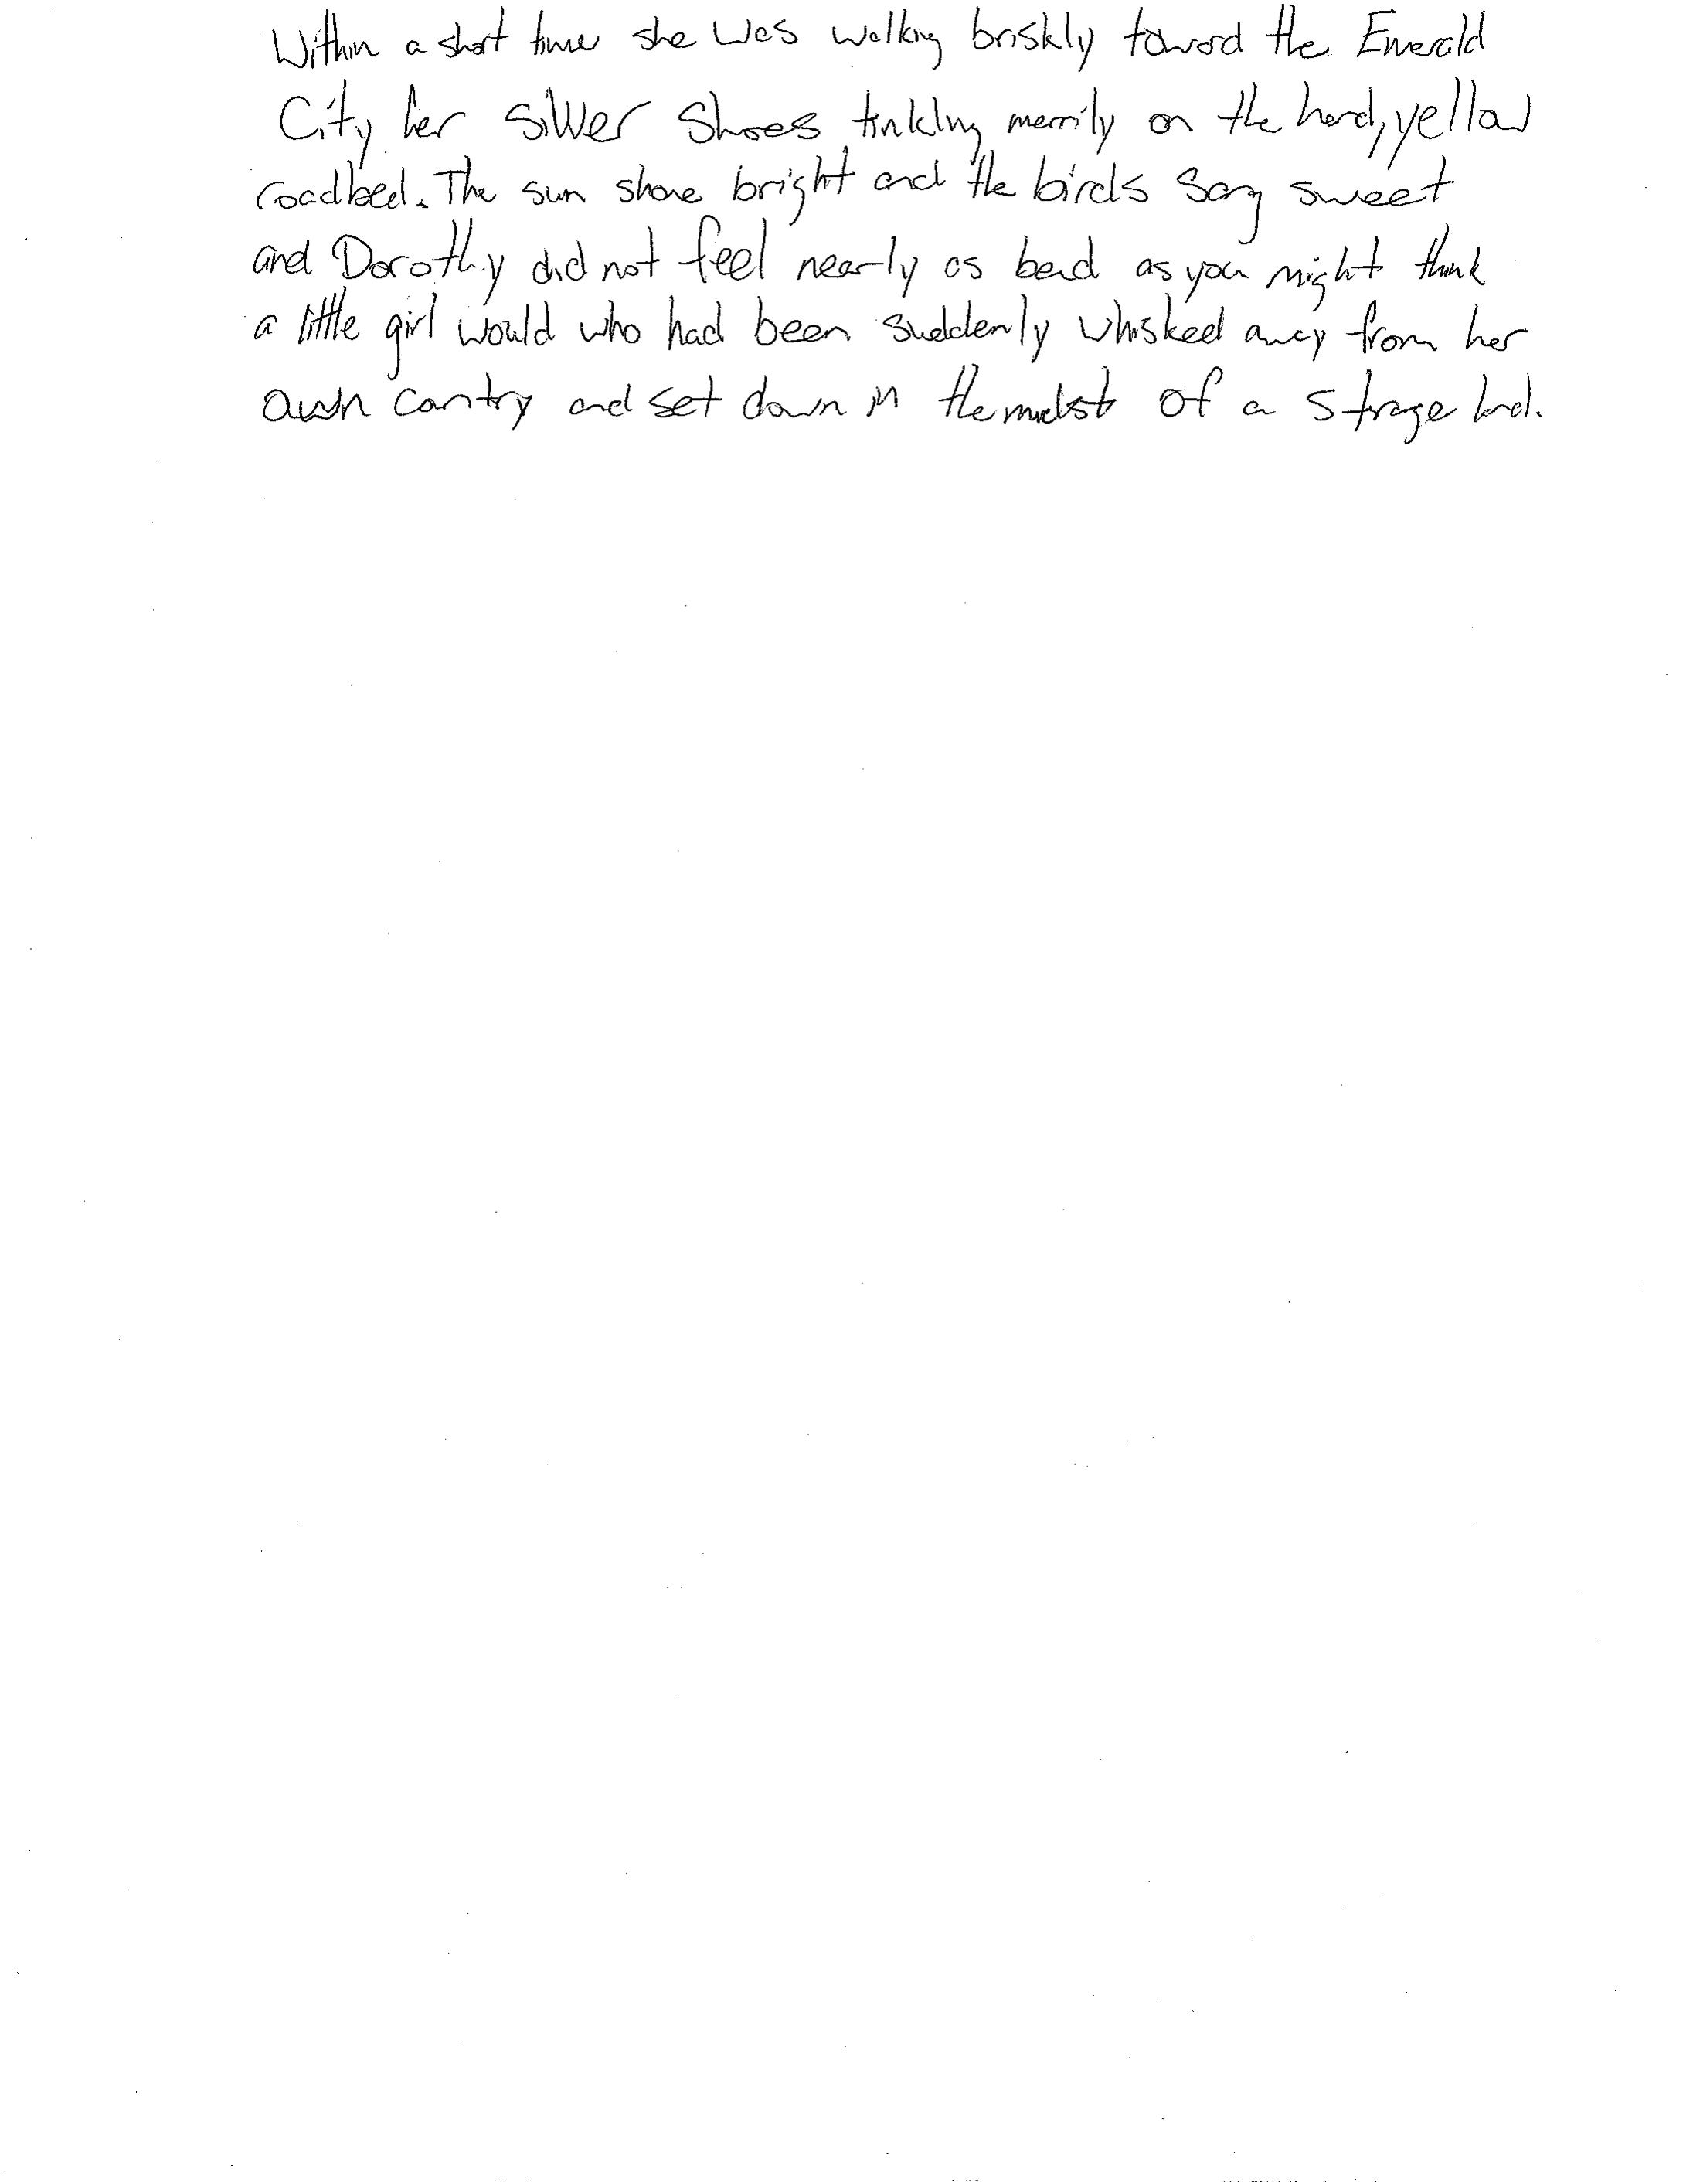 Within a short time she was walking briskly toward the Emerald
City her silver shoes tinkling merrily on the hard, yellow
roadbed. The sun shone bright and the birds sang sweet
and Dorothy did not feel nearly as bad as you might think
a little girl would who had been suddenly whisked away from her
own country and set down in the midst of a strange land.